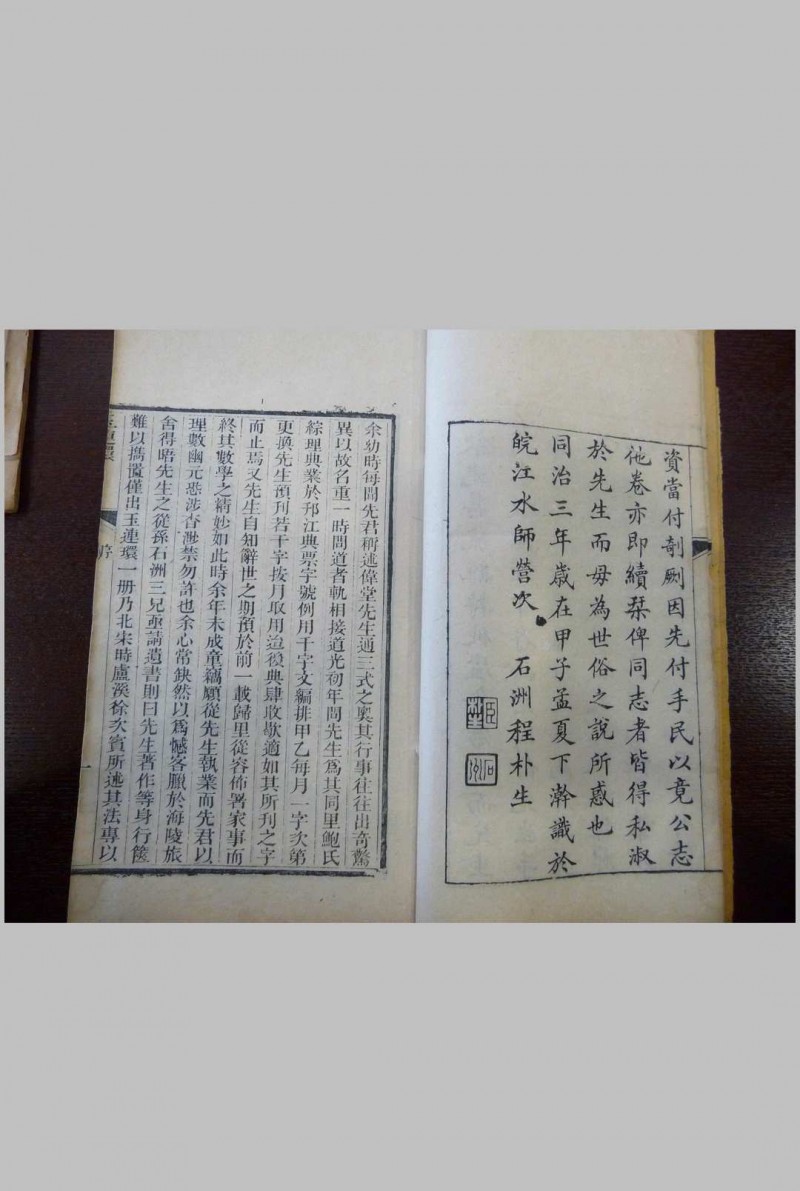 資當付剞劂因先付手民以竟公志
他卷亦即續栞俾同志者皆得私淑
於先生而毋為世俗之說所惑也
同治三年歲在甲子孟夏下澣識於
皖江水師營次 石洲程朴生
石洲
余幼時每聞先君稱述偉堂先生通三式之奧其行事往往出奇驚
異以故名重一時問道者軌相接道光初年間先生爲其同里鮑氏
綜理典業於邗江典票字號例用千字文編排甲乙每月一字次第
更換先生預刊若干字按月取用迨後典肆收歇適如其所刊之字
而止焉又先生自知辭世之期預於前一載歸里從容佈署家事而
終其數學之精妙如此時余年未成童竊願從先生執業而先君以
理數幽元恐涉杳渺禁勿許也余心常缺然以爲憾客臘於海陵旅
舍得晤先生之從孫石洲三兄亟請遺書則曰先生著作等身行篋
難以攜置僅出玉連環一册乃北宋時盧溪徐次賓所述其法專以
序
一